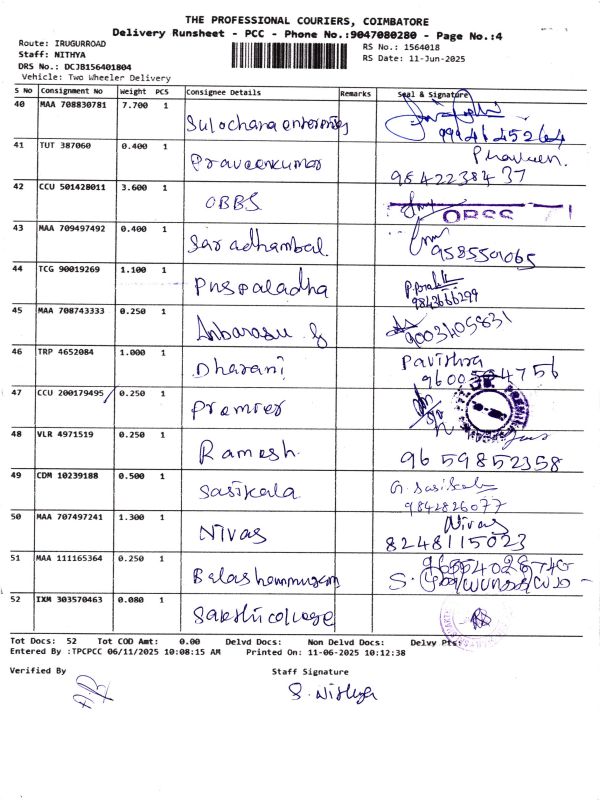 THE PROFESSIONAL COURIERS, COIMBATORE
Delivery Runsheet - PCC - Phone No.:9047080280 - Page No.:4
Route: IRUGURROAD
RS No.: 1564018
Staff: NITHYA
RS Date: 11-Jun-2025
DRS No.: DCJB156401804
Vehicle: Two Wheeler Delivery
S No Consignment No Weight PCS Consignee Details Remarks Seal & Signature
40 MAA 708830781 7.700 1 Sulochana enterprises
9994645264
41 TUT 387060 0.400 1 Praveenkumar Praveen.
9842238437
42 CCU 501428011 3.600 1 OBBS
43 MAA 709497492 0.400 1 Saradhambal
9585501065
44 TCG 90019269 1.100 1 Pnspaladha
9843666299
45 MAA 708743333 0.250 1 Anbarasu g
9003405831
46 TRP 4652084 1.000 1 Dharani Pavithra
47 CCU 200179495 0.250 1 Premier
48 VLR 4971519 0.250 1 Ramesh
9659852358
49 CDM 10239188 0.500 1 Sasikala G. Sasikala
9842826077
50 MAA 707497241 1.300 1 Nivas Nivas
8248115023
51 MAA 111165364 0.250 1 Balashanmugam
52 IXM 303570463 0.080 1 Sakthi college
Tot Docs: 52 Tot COD Amt: 0.00 Delvd Docs: Non Delvd Docs: Delvy Pts:
Entered By :TPCPCC 06/11/2025 10:08:15 AM Printed On: 11-06-2025 10:12:38
Verified By Staff Signature
S. Nithya